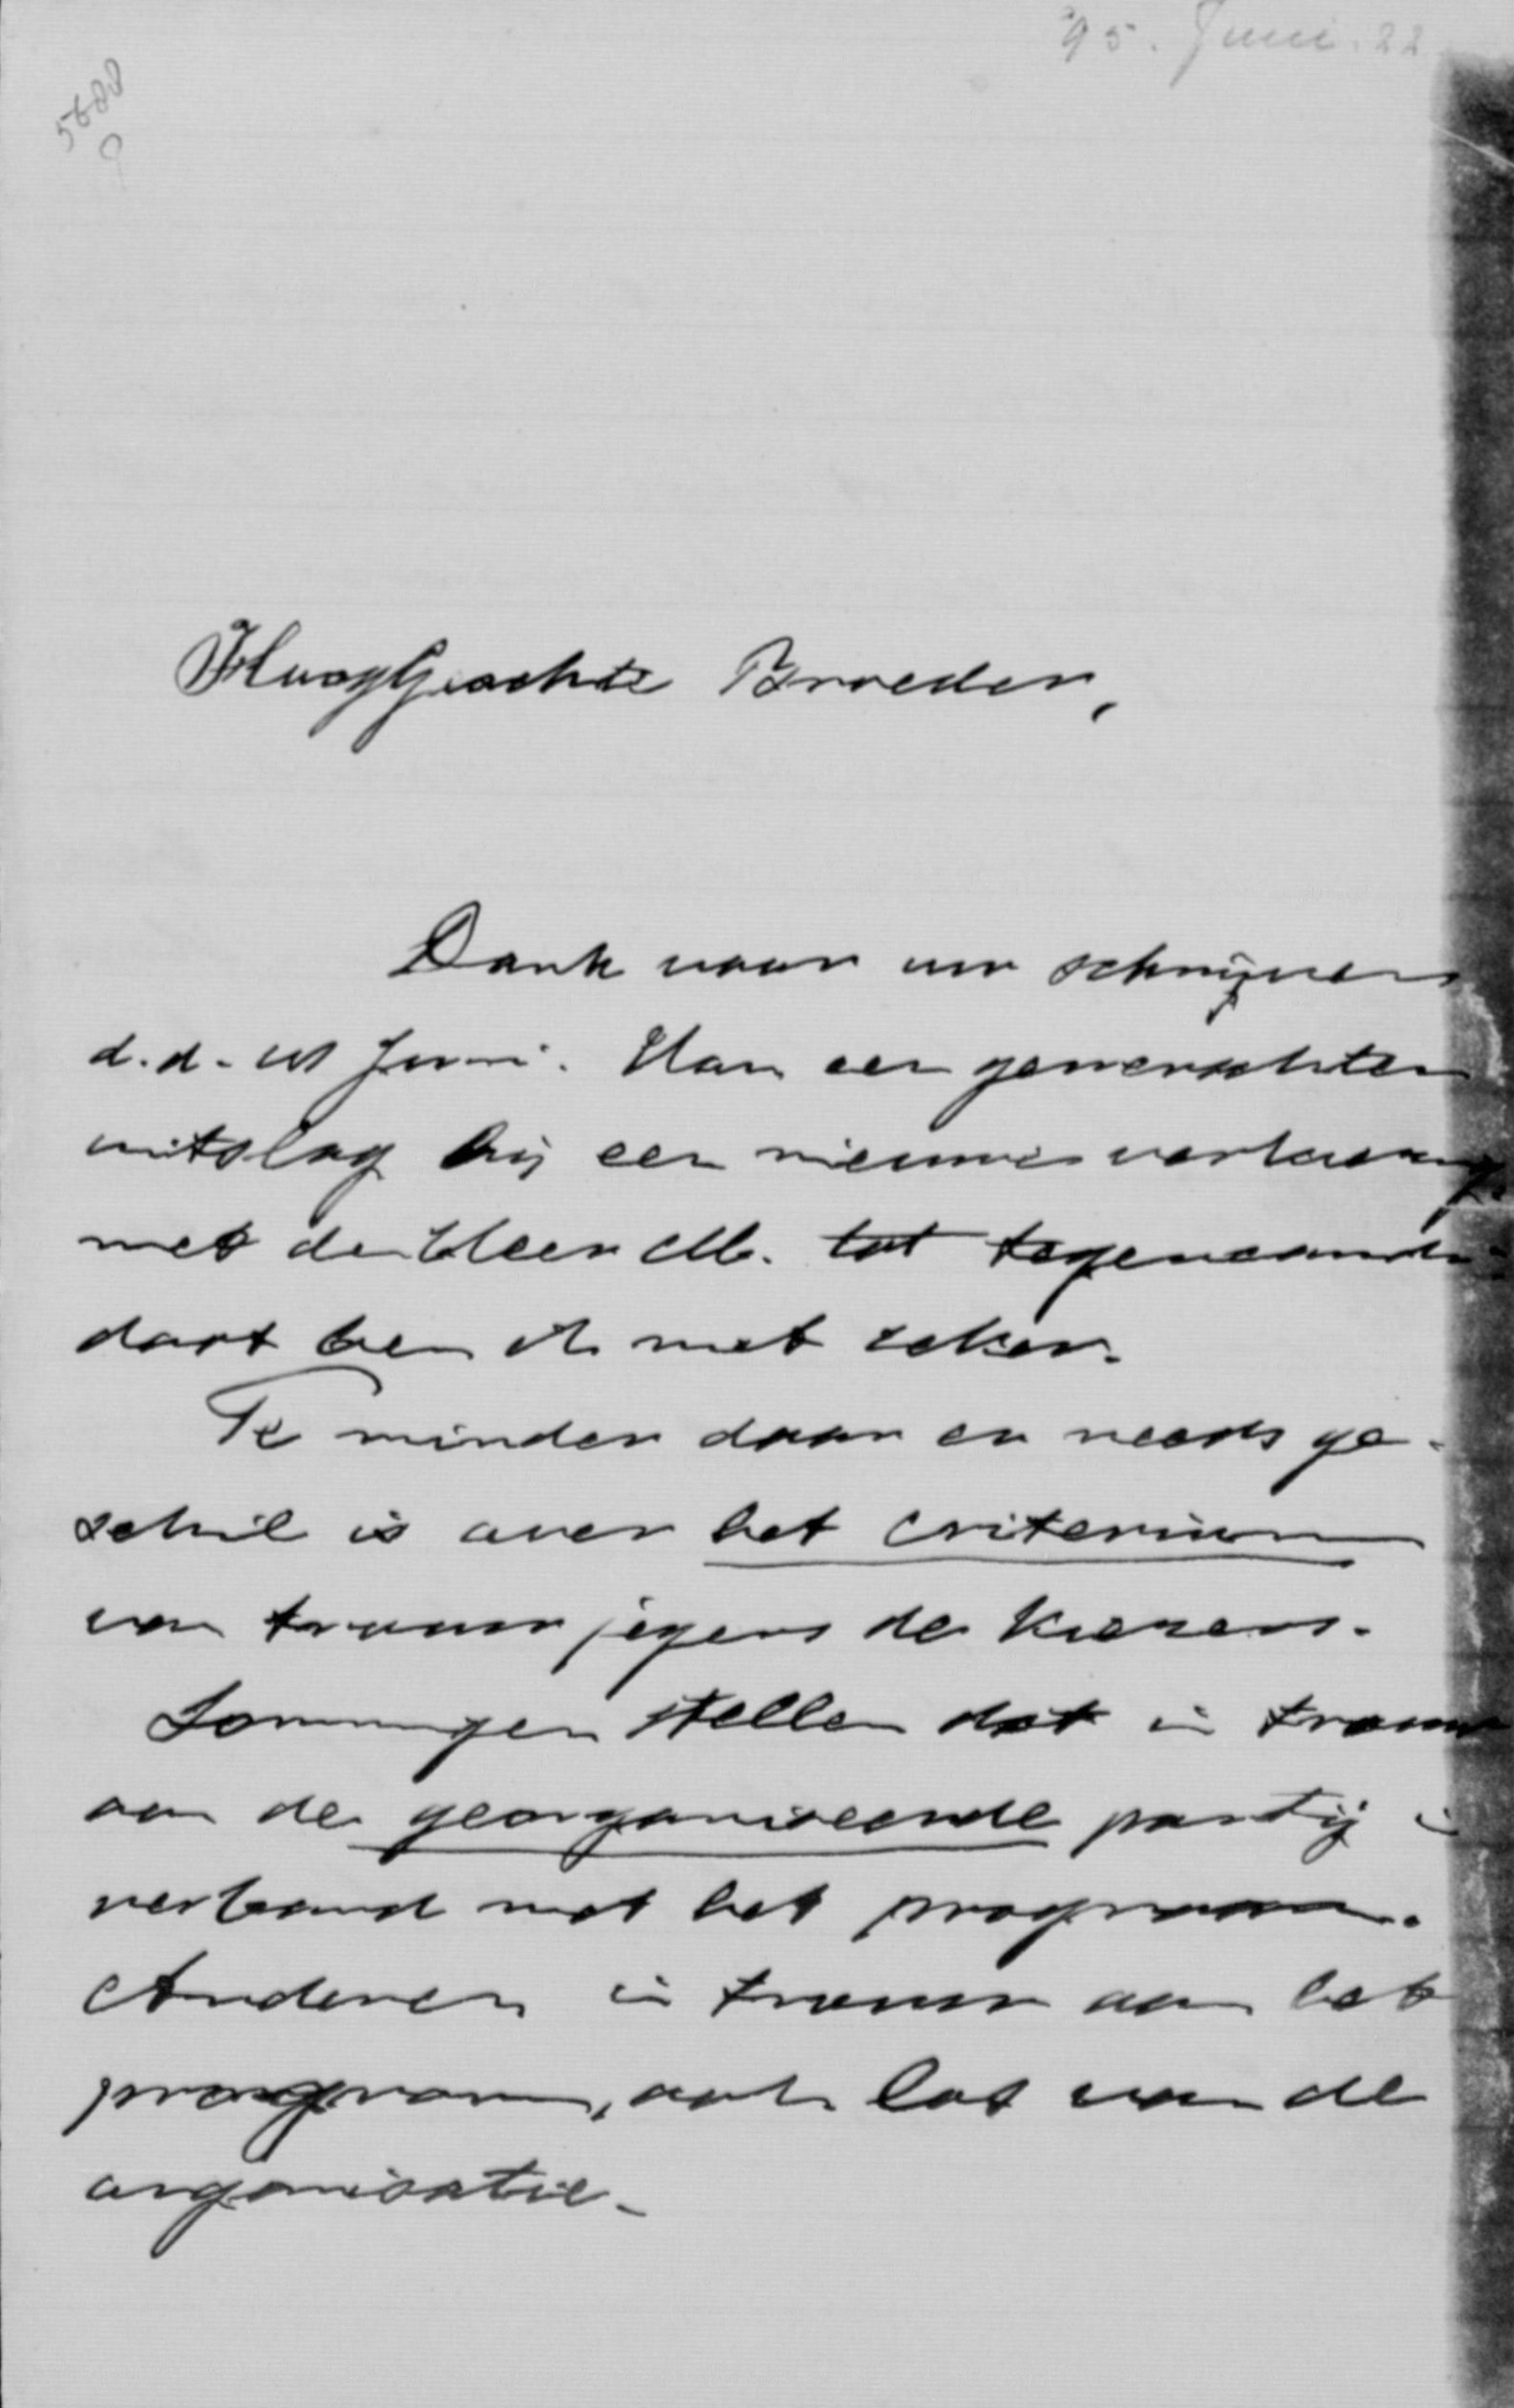 '95. Juni. 22
5688
HoogGeachte Broeder,
Dank voor uw schrijven
d.d. Juni. Van een gewenschten
uitslag bij een nieuwe
met den Heer M. tot
dart ben ik niet zeker.
Te minder daar er reeds ge-
schil is over het criterium
van trouw jegens de kiezers.
Sommigen stellen dat in trouw
aan de georganiseerde partij in
verband met het program.
Anderen in trouw aan het
program, ook los van de
organisatie.